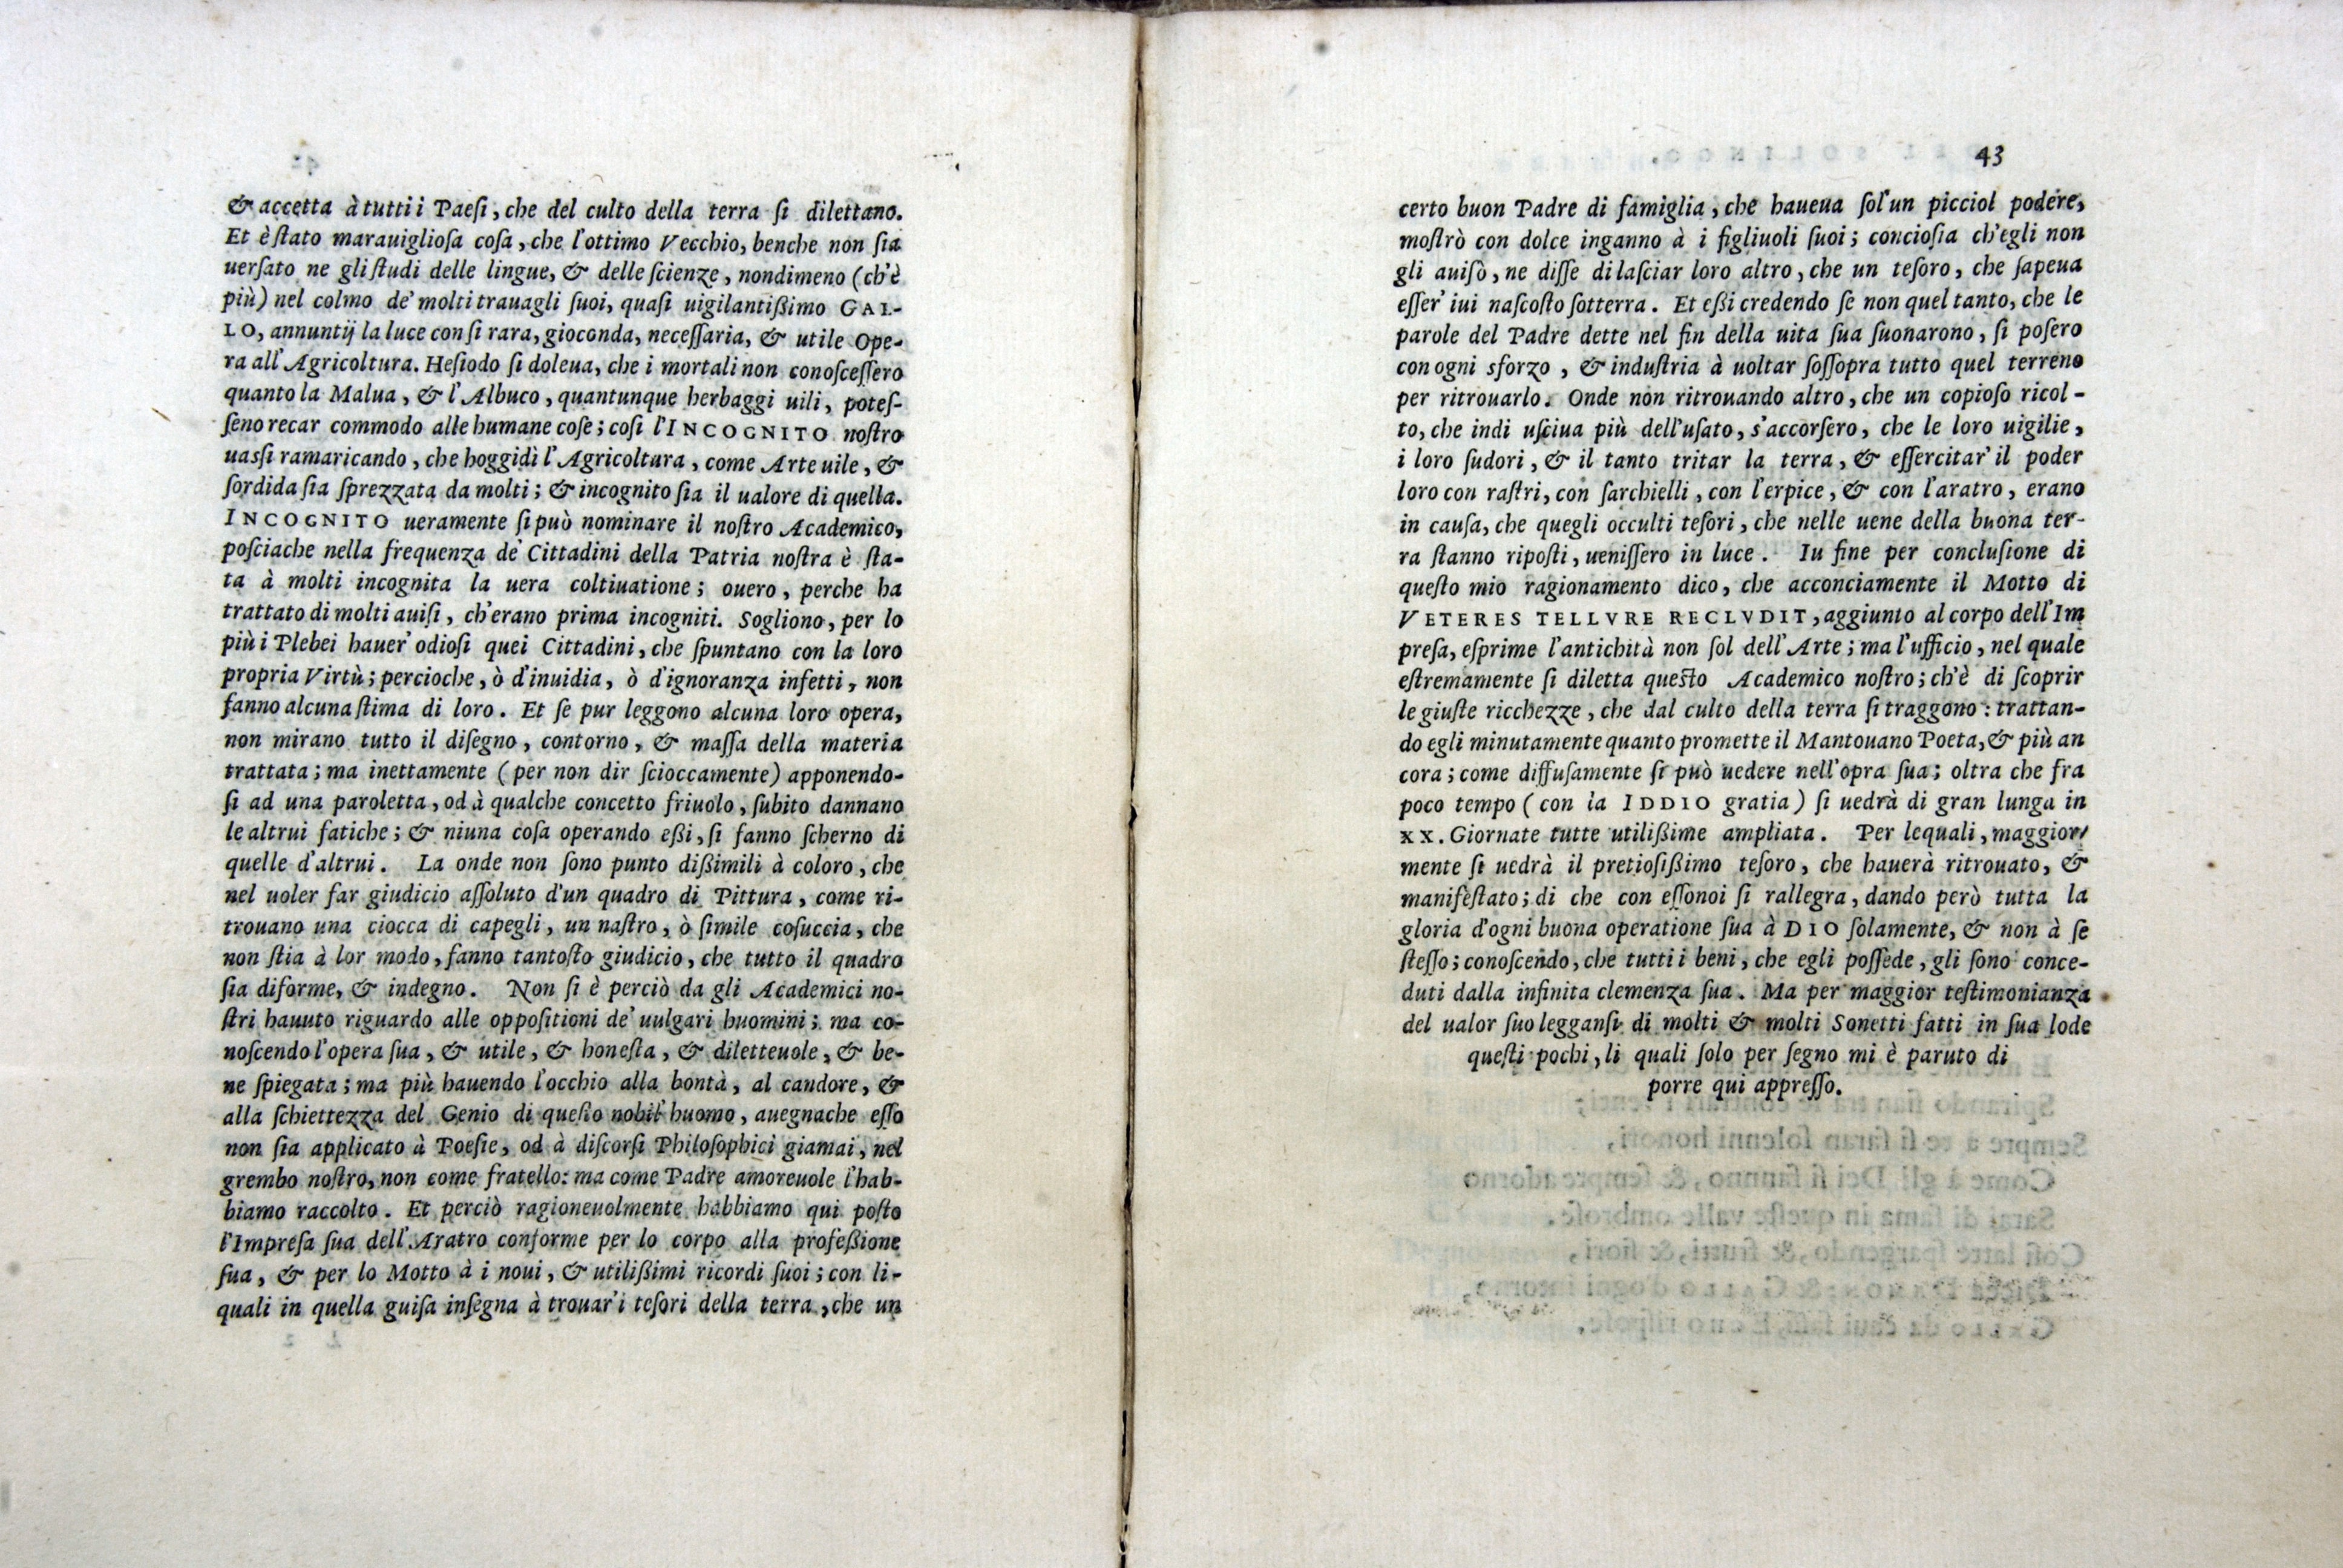 & accetta à tutti i Paeſi, che del culto della terra ſi dilettano.
Et è ſtato marauiglioſa coſa, che l'ottimo Vecchio, benche non ſia
uerſato ne gli ſtudi delle lingue, & delle ſcienze, nondimeno (ch'è
più) nel colmo de' molti trauagli ſuoi, quaſi uigilantißimo GAL-
LO, annuntij la luce con ſi rara, gioconda, neceſſaria, & utile Ope-
ra all' Agricoltura. Heſiodo ſi doleua, che i mortali non conoſceſſero
quanto la Malua, & l' Albuco, quantunque herbaggi uili, poteſ-
ſeno recar commodo alle humane coſe; coſi l'INCOGNITO noſtro
uaſſi ramaricando, che hoggidì l' Agricoltura, come Arte uile, &
ſordida ſia ſprezzata da molti; & incognito ſia il ualore di quella.
INCOGNITO ueramente ſi può nominare il noſtro Academico,
poſciache nella frequenza de' Cittadini della Patria noſtra è ſta-
ta à molti incognita la uera coltiuatione; ouero, perche ha
trattato di molti auiſi, ch'erano prima incogniti. Sogliono, per lo
più i Plebei hauer' odioſi quei Cittadini, che ſpuntano con la loro
propria Virtù; percioche, ò d'inuidia, ò d'ignoranza infetti, non
fanno alcuna ſtima di loro. Et ſe pur leggono alcuna loro opera,
non mirano tutto il diſegno, contorno, & maſſa della materia
trattata; ma inettamente (per non dir ſcioccamente) apponendo-
ſi ad una paroletta, od à qualche concetto friuolo, ſubito dannano
le altrui fatiche; & niuna coſa operando eßi, ſi fanno ſcherno di
quelle d'altrui. La onde non ſono punto dißimili à coloro, che
nel uoler far giudicio aſſoluto d'un quadro di Pittura, come ri-
trouano una ciocca di capegli, un naſtro, ò ſimile coſuccia, che
non ſtia à lor modo, fanno tantoſto giudicio, che tutto il quadro
ſia diforme, & indegno. Non ſi è perciò da gli Academici no-
ſtri hauuto riguardo alle oppoſitioni de' uulgari huomini; ma co-
noſcendo l'opera ſua, & utile, & honeſta, & diletteuole, & be-
ne ſpiegata; ma più hauendo l'occhio alla bontà, al candore, &
alla ſchiettezza del Genio di queſto nobil' huomo, auegnache eſſo
non ſia applicato à Poeſie, od à diſcorſi Philoſophici giamai, nel
grembo noſtro, non come fratello: ma come Padre amoreuole l'hab-
biamo raccolto. Et perciò ragioneuolmente habbiamo qui poſto
l'Impreſa ſua dell' Aratro conforme per lo corpo alla profeßione
ſua, & per lo Motto à i noui, & utilißimi ricordi ſuoi; con li-
quali in quella guiſa inſegna à trouar' i teſori della terra, che un
43
certo buon Padre di famiglia, che haueua ſol' un picciol podere,
moſtrò con dolce inganno à i figliuoli ſuoi; concioſia ch'egli non
gli auiſò, ne diſſe di laſciar loro altro, che un teſoro, che ſapeua
eſſer' iui naſcoſto ſotterra. Et eßi credendo ſe non quel tanto, che le
parole del Padre dette nel fin della uita ſua ſuonarono, ſi poſero
con ogni sforzo, & induſtria à uoltar ſoſſopra tutto quel terreno
per ritrouarlo. Onde non ritrouando altro, che un copioſo ricol-
to, che indi uſciua più dell'uſato, s'accorſero, che le loro uigilie,
i loro ſudori, & il tanto tritar la terra, & eſſercitar' il poder
loro con raſtri, con ſarchielli, con l'erpice, & con l'aratro, erano
in cauſa, che quegli occulti teſori, che nelle uene della buona ter-
ra ſtanno ripoſti, ueniſſero in luce. In fine per concluſione di
queſto mio ragionamento dico, che acconciamente il Motto di
VETERES TELLVRE RECLVDIT, aggiunto al corpo dell'Im
preſa, eſprime l'antichità non ſol dell' Arte; ma l'ufficio, nel quale
eſtremamente ſi diletta queſto Academico noſtro; ch'è di ſcoprir
le giuſte ricchezze, che dal culto della terra ſi traggono: trattan-
do egli minutamente quanto promette il Mantouano Poeta, & più an
cora; come diffuſamente ſi può uedere nell'opra ſua; oltra che fra
poco tempo (con la IDDIO gratia) ſi uedrà di gran lunga in
XX. Giornate tutte utilißime ampliata. Per lequali, maggior-
mente ſi uedrà il pretioſißimo teſoro, che hauerà ritrouato, &
manifeſtato; di che con eſſonoi ſi rallegra, dando però tutta la
gloria d'ogni buona operatione ſua à DIO ſolamente, & non à ſe
ſteſſo; conoſcendo, che tutti i beni, che egli poſſede, gli ſono conce-
duti dalla infinita clemenza ſua. Ma per maggior teſtimonianza
del ualor ſuo legganſi di molti & molti Sonetti fatti in ſua lode
queſti pochi, li quali ſolo per ſegno mi è paruto di
porre qui appreſſo.